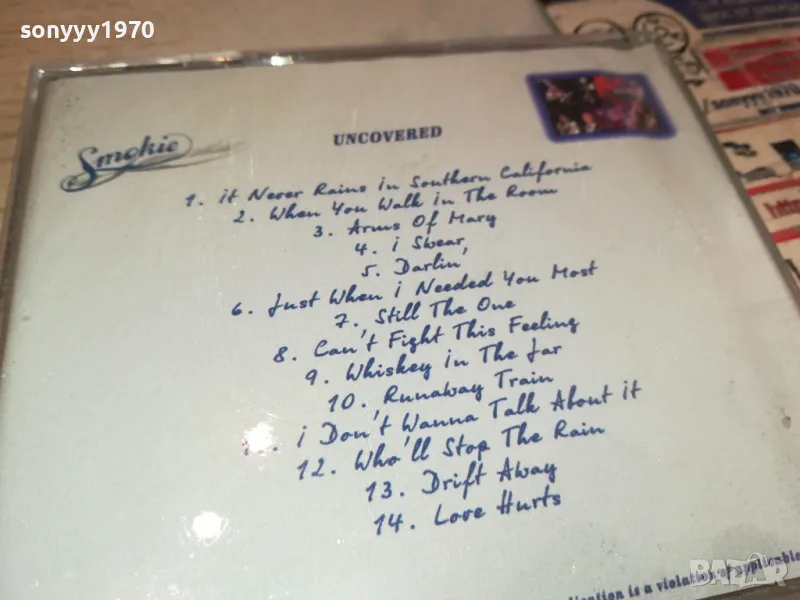 sonyyy1970
Smokie
UNCOVERED
1. it Never Rains in Southern California
2. When You Walk in The Room
3. Arms Of Mary
4. i Swear,
5. Darlin
6. Just When i Needed You Most
7. Still The One
8. Can't Fight This Feeling
9. Whiskey in The Jar
10. Runaway Train
i Don't Wanna Talk About it
12. Who'll Stop The Rain
13. Drift Away
14. Love Hurts
is a violation of applicable
BAZAR